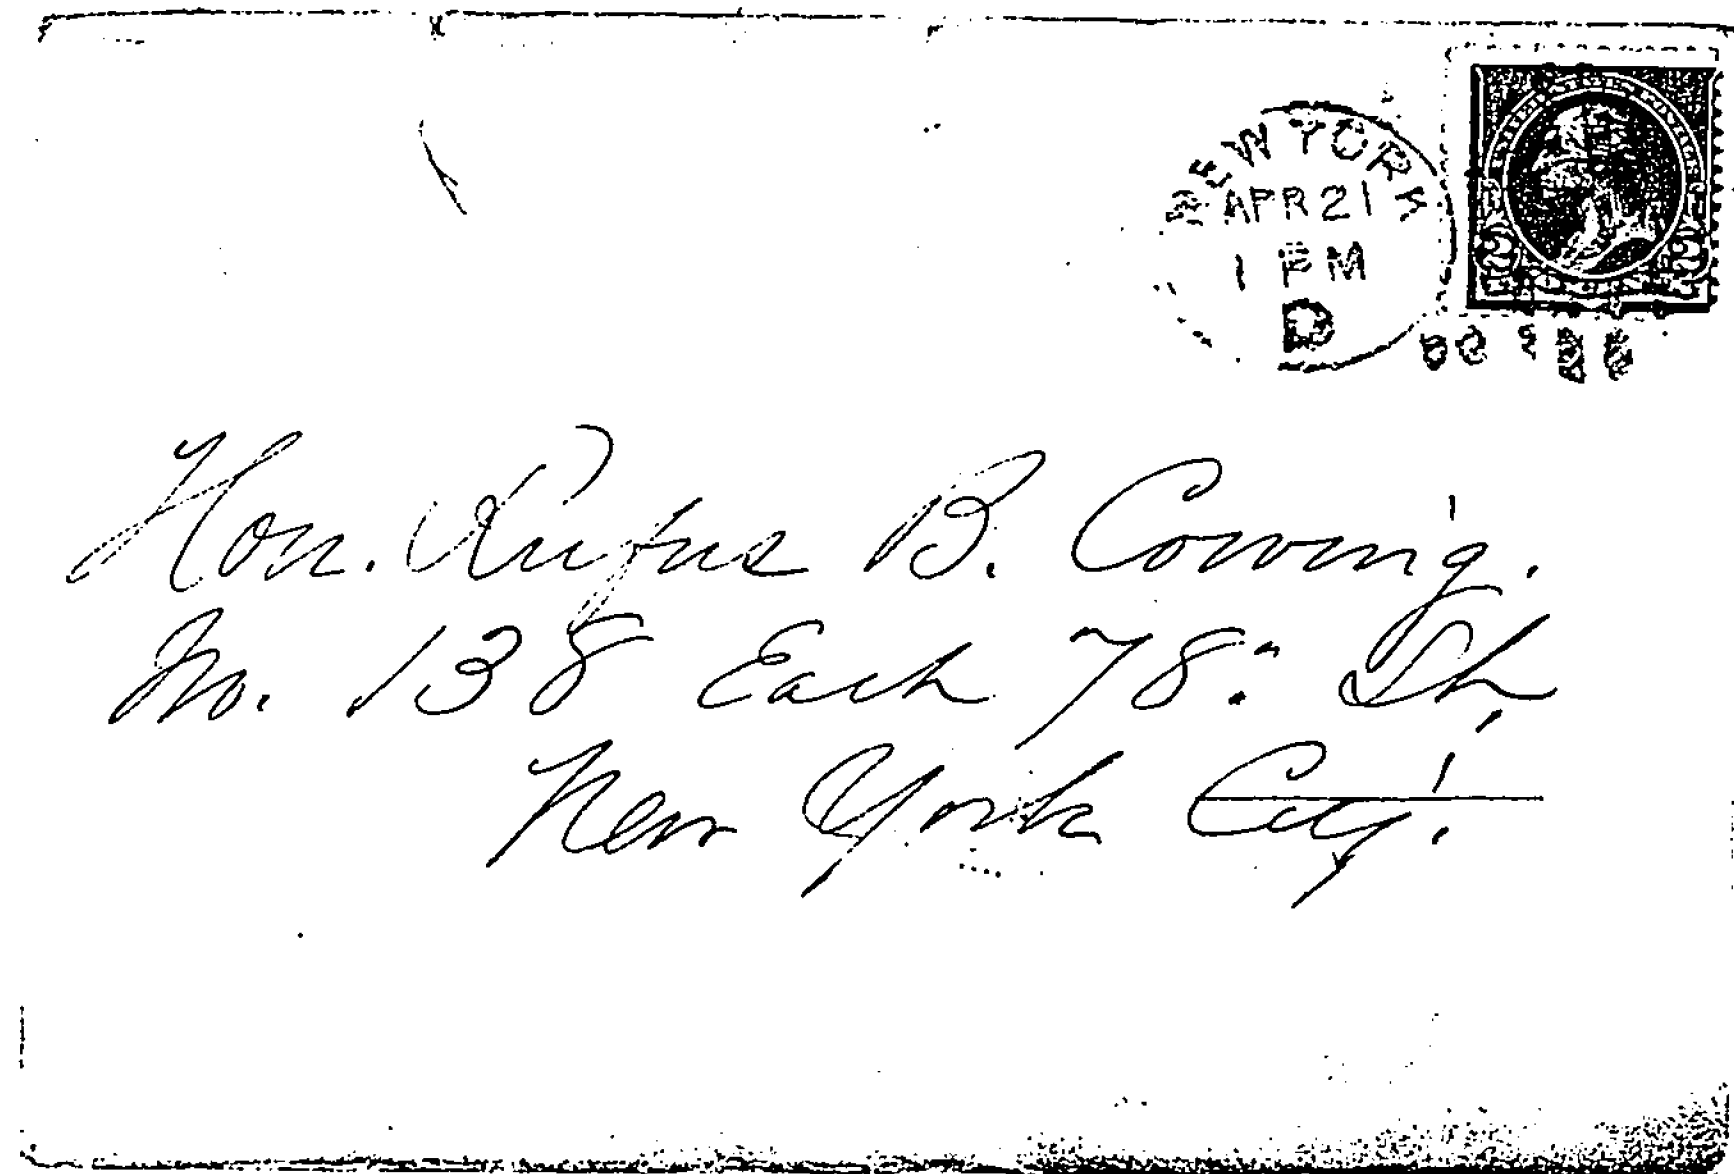 NEW YORK
APR 21
1 PM
D
2 2
Hon. Rufus B. Cowing.
No. 138 East 78." St,
New York City.